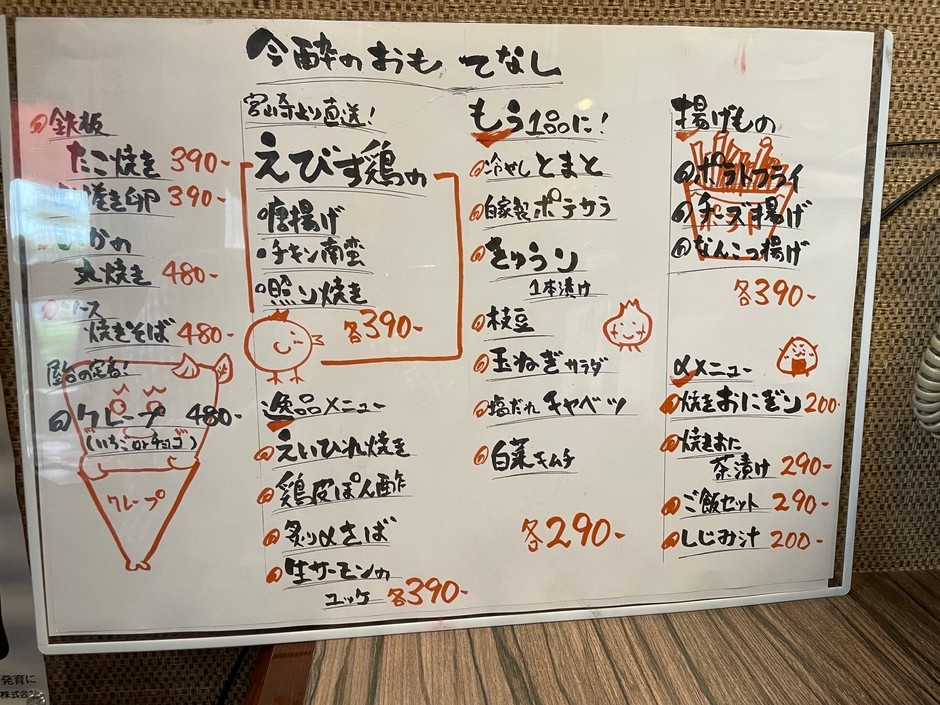 今酔のおもてなし
鉄板
たこ焼き 390-
巻き卵 390-
いかの
丸焼き 480-
ソース
焼きそば 480-
屋台の定番!
クレープ 480-
(いちごorチョコ)
クレープ
宮崎より直送!
えびす鶏の
・唐揚げ
・チキン南蛮
・照り焼き
各390-
逸品メニュー
えいひれ焼き
鶏皮ぽん酢
炙り〆さば
生サーモンの
ユッケ 各390-
もう1品に!
冷やしとまと
自家製ポテサラ
きゅうり
1本漬け
枝豆
玉ねぎサラダ
塩だれキャベツ
白菜キムチ
各290-
揚げもの
ポテトフライ
チーズ揚げ
なんこつ揚げ
各390-
〆メニュー
焼きおにぎり 200-
焼きおに
茶漬け 290-
ご飯セット 290-
しじみ汁 200-
発育に
株式会